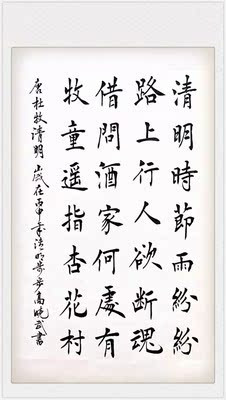 清明時節雨紛紛
路上行人欲断魂
借問酒家何處有
牧童遥指杏花村
唐杜牧清明 歲在丙申年清明 高 武書